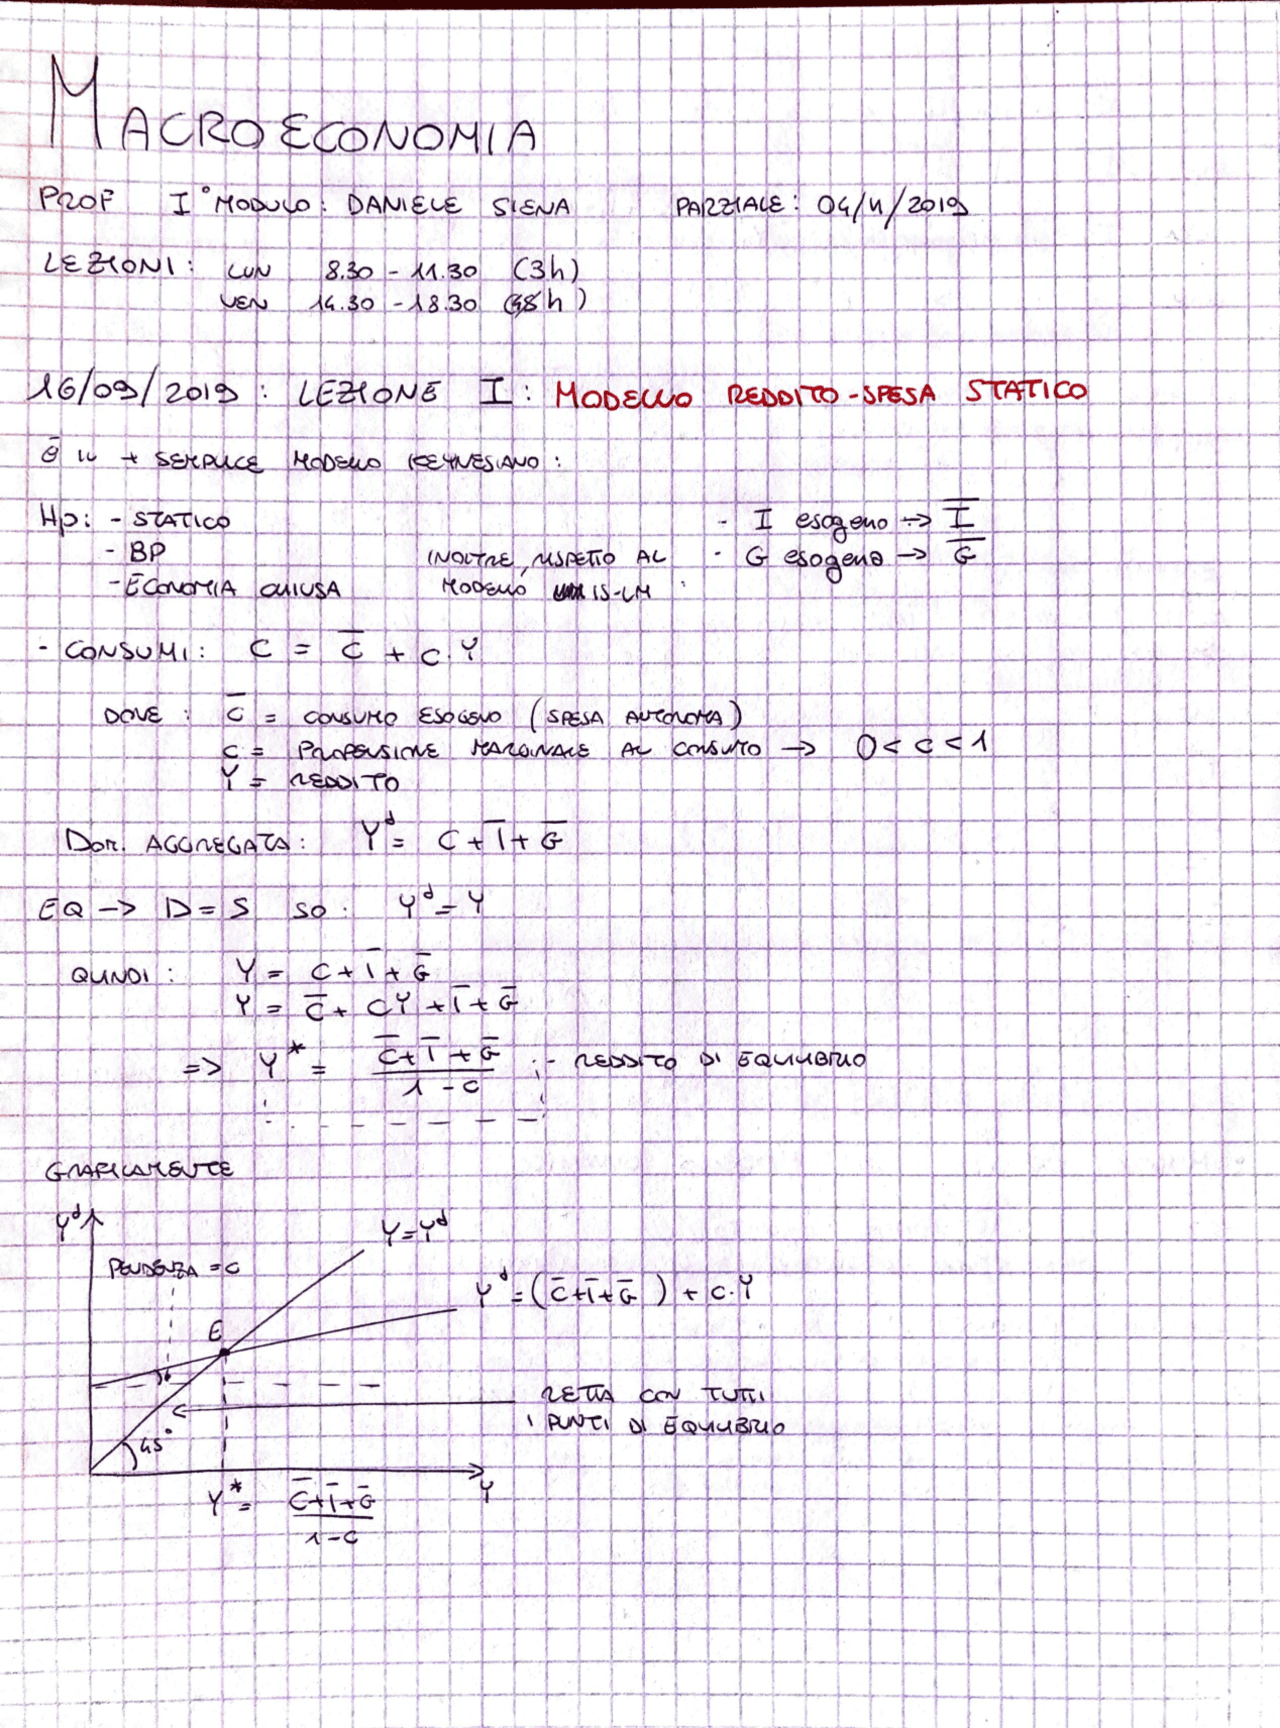 MACROECONOMIA
PROF I° MODULO: DANIELE SIENA PARZIALE: 04/11/2019
LEZIONI: LUN 8.30 - 11.30 (3h)
VEN 14.30 - 18.30 ( h)
16/09/2019: LEZIONE I: MODELLO REDDITO-SPESA STATICO
È IL + SEMPLICE MODELLO KEYNESIANO:
Hp: - STATICO - I esogeno → I̅
- BP INOLTRE, RISPETTO AL - G esogena → G̅
- ECONOMIA CHIUSA MODELLO IS-LM :
- CONSUMI: C = C̅ + c·Y
DOVE: C̅ = CONSUMO ESOGENO (SPESA AUTONOMA)
c = PROPENSIONE MARGINALE AL CONSUMO → 0 < c < 1
Y = REDDITO
DOM. AGGREGATA: Yᵈ = C + I̅ + G̅
EQ → D = S SO: Yᵈ = Y
QUINDI: Y = C + I̅ + G̅
Y = C̅ + cY + I̅ + G̅
=> Y* = (C̅ + I̅ + G̅)/(1 - c) :- REDDITO DI EQUILIBRIO
GRAFICAMENTE
Yᵈ
Y = Yᵈ
PENDENZA = c
Yᵈ = (C̅+I̅+G̅) + c·Y
E
RETTA CON TUTTI
I PUNTI DI EQUILIBRIO
45°
Y
Y* = (C̅+I̅+G̅)/(1-c)